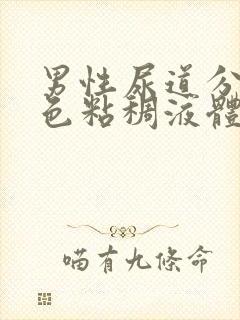 男性尿道分
色粘稠液體
喵有九條命